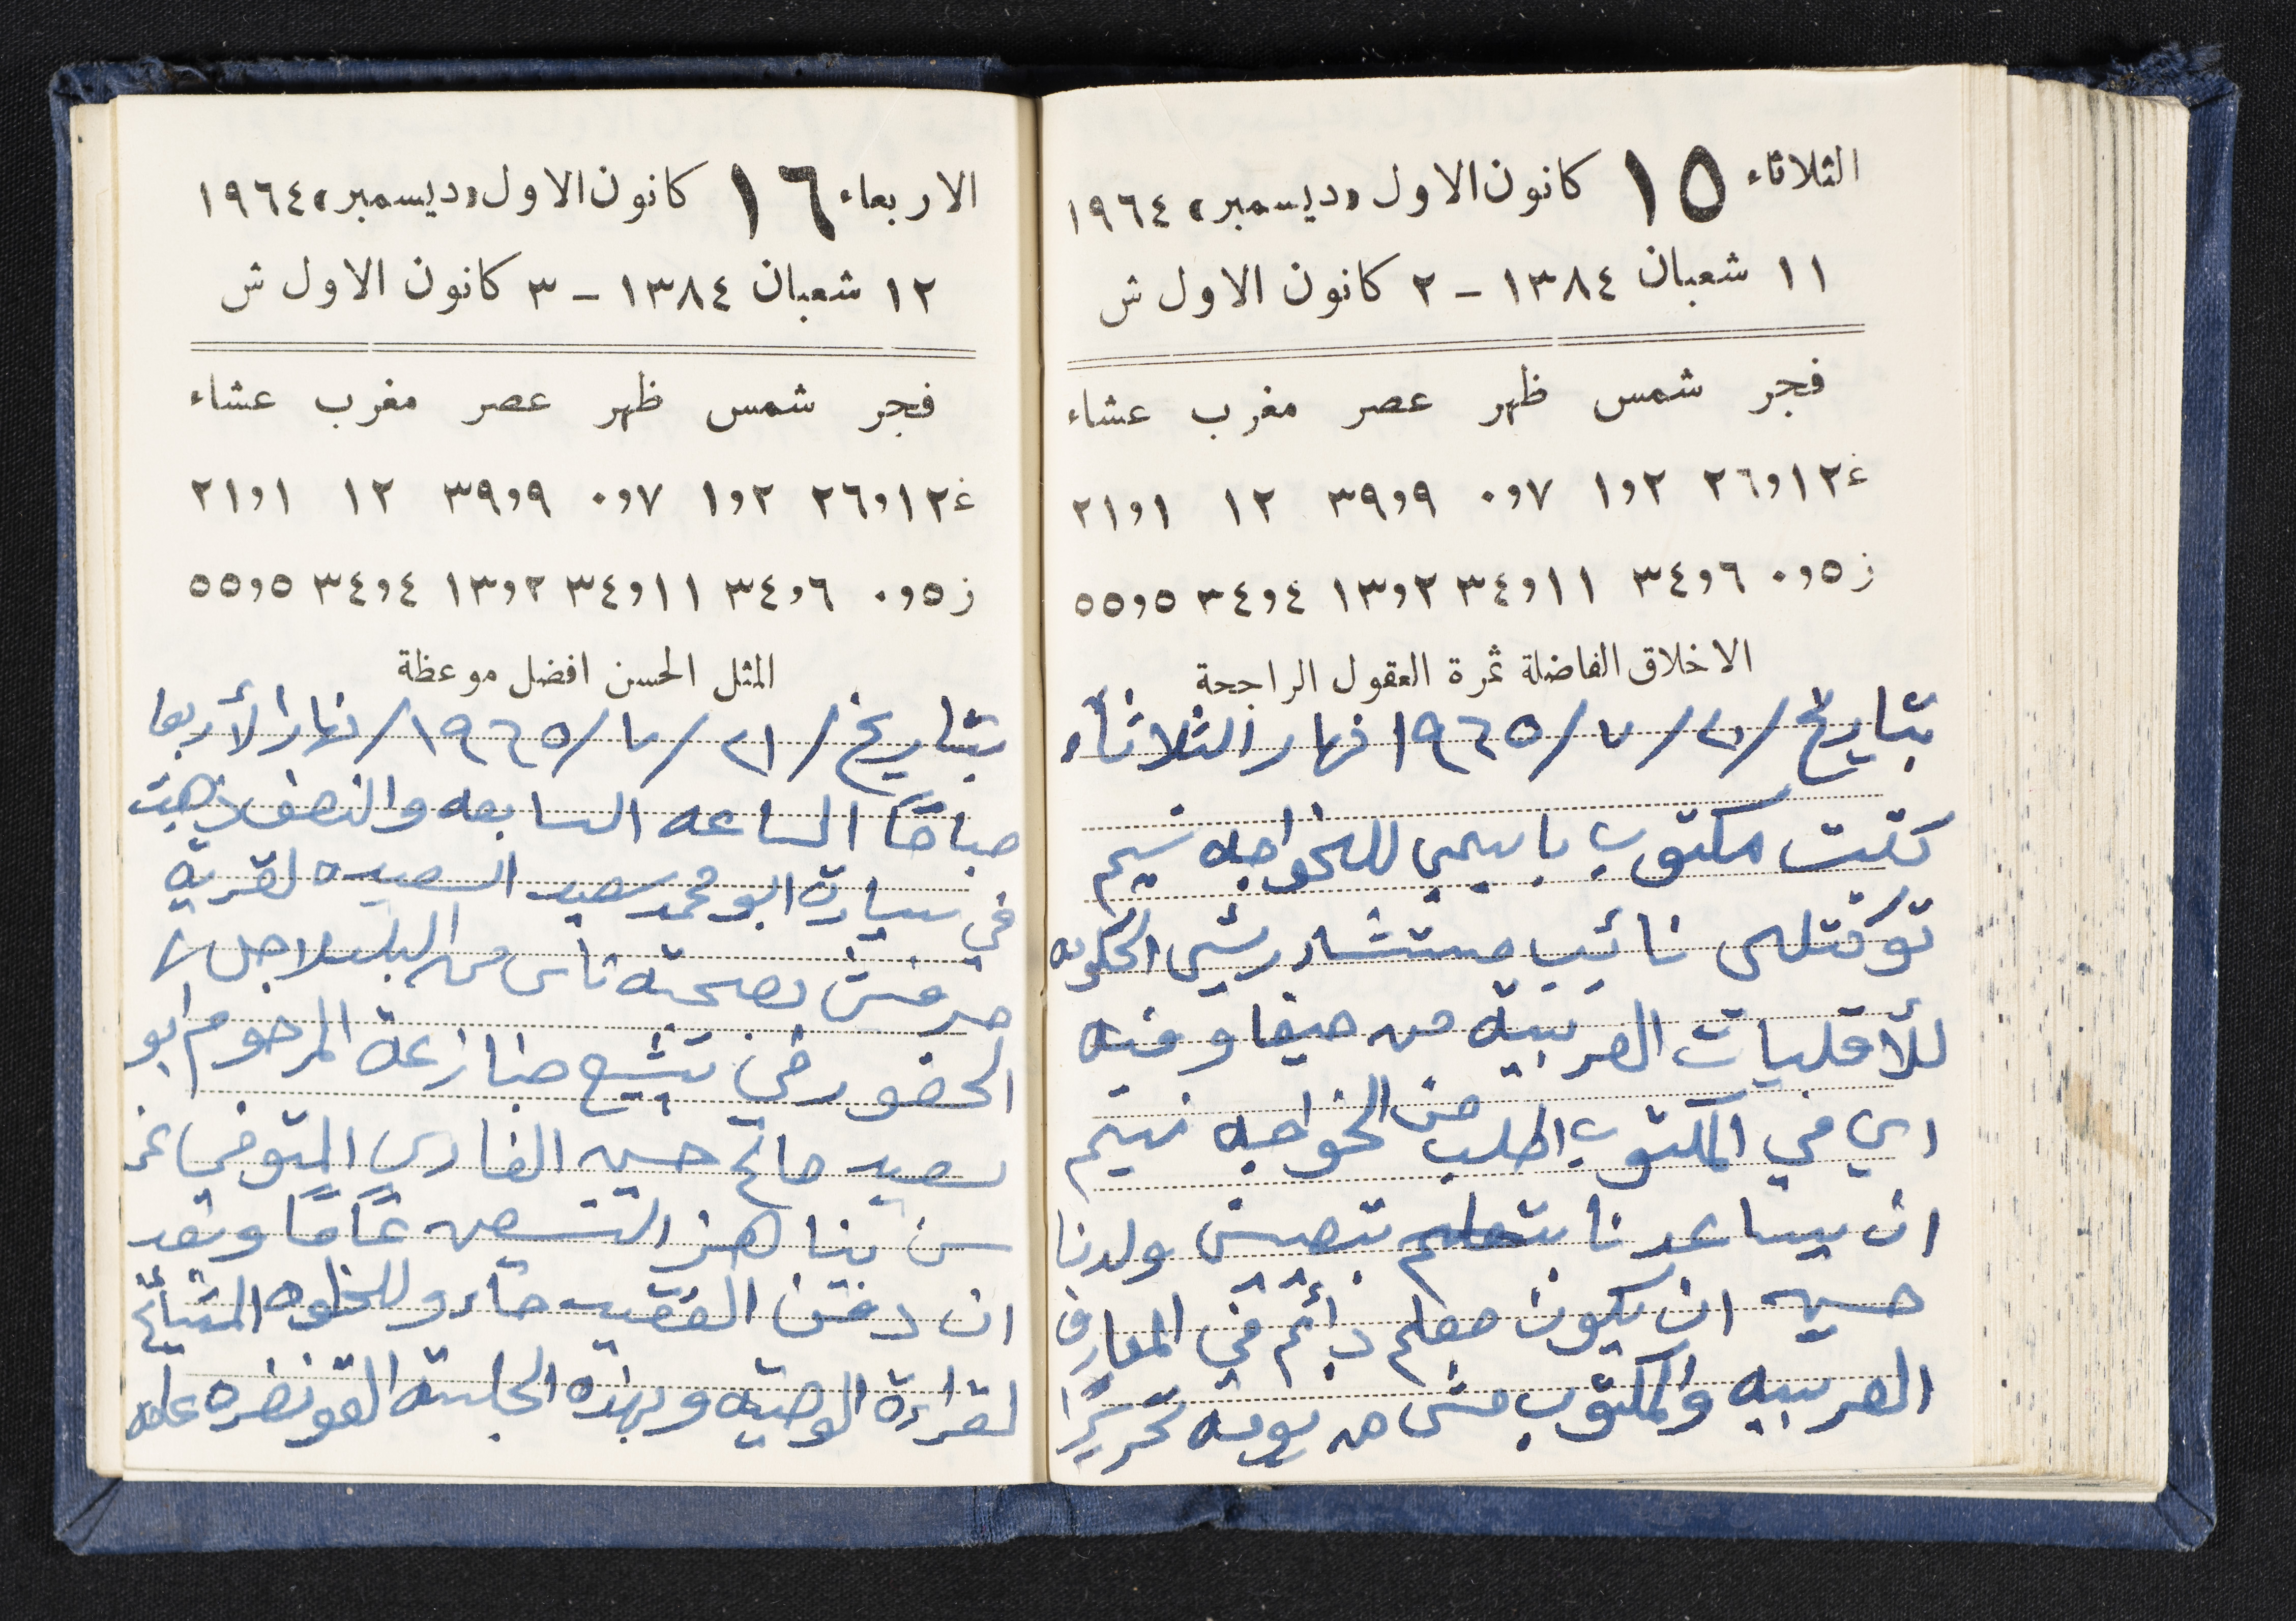 الثلاثاء ١٥ كانون الاول «ديسمبر» ١٩٦٤
١١ شعبان ١٣٨٤ - ٢ كانون الاول ش
فجر شمس ظهر عصر مغرب عشاء
غ ١٢و٢٦ ٢و١ ٧و٠ ٩و٣٩ ١٢ ١و٢١
ز ٥و٠ ٦و٣٤ ١١و٣٤ ٢و١٣ ٤و٣٤ ٥و٥٥
الاخلاق الفاضلة ثمرة العقول الراجحة
بتاريخ / ٢٠ / ٧ / ١٩٦٥ نهار الثلاثاء
كتبت مكتوب باسمي للخواجه نسيم
توكتلي نائيب مستشار رئيس الحكومه
للأقليات العربيه من حيفا وفيه
اي في المكتوب اطلب من الخواجه نسيم
ان يساعدنا بتعلم بتعين ولدنا
حسين ان يكون معلم دائم في المعارف
العربيه والمكتوب تحريرًا
الاربعاء ١٦ كانون الاول «ديسمبر» ١٩٦٤
١٢ شعبان ١٣٨٤ - ٣ كانون الاول ش
فجر شمس ظهر عصر مغرب عشاء
غ ١٢و٢٦ ٢و١ ٧و٠ ٩و٣٩ ١٢ ١و٢١
ز ٥و٠ ٦و٣٤ ١١و٣٤ ٢و١٣ ٤و٣٤ ٥و٥٥
المثل الحسن افضل موعظة
بتاريخ / ٢١ / ٧ / ١٩٦٥ / نهار الأربعا
صباحًا الساعه السابعه والنصف ذهبت
في سيارة ابو محمد سعيد السعيد لقرية
حرفيش بصحبته ناس من البلد لاجل
الحضور في تشيع جنازعة المرحوم ابو
سعيد صالح حسين الفارس المتوفي عن
سن يناهز التسعين عامًا وبعد
ان دفن الفقيد صارو للخلوه المشائخ
لقراءة الوصيه وبهذه الجلسه